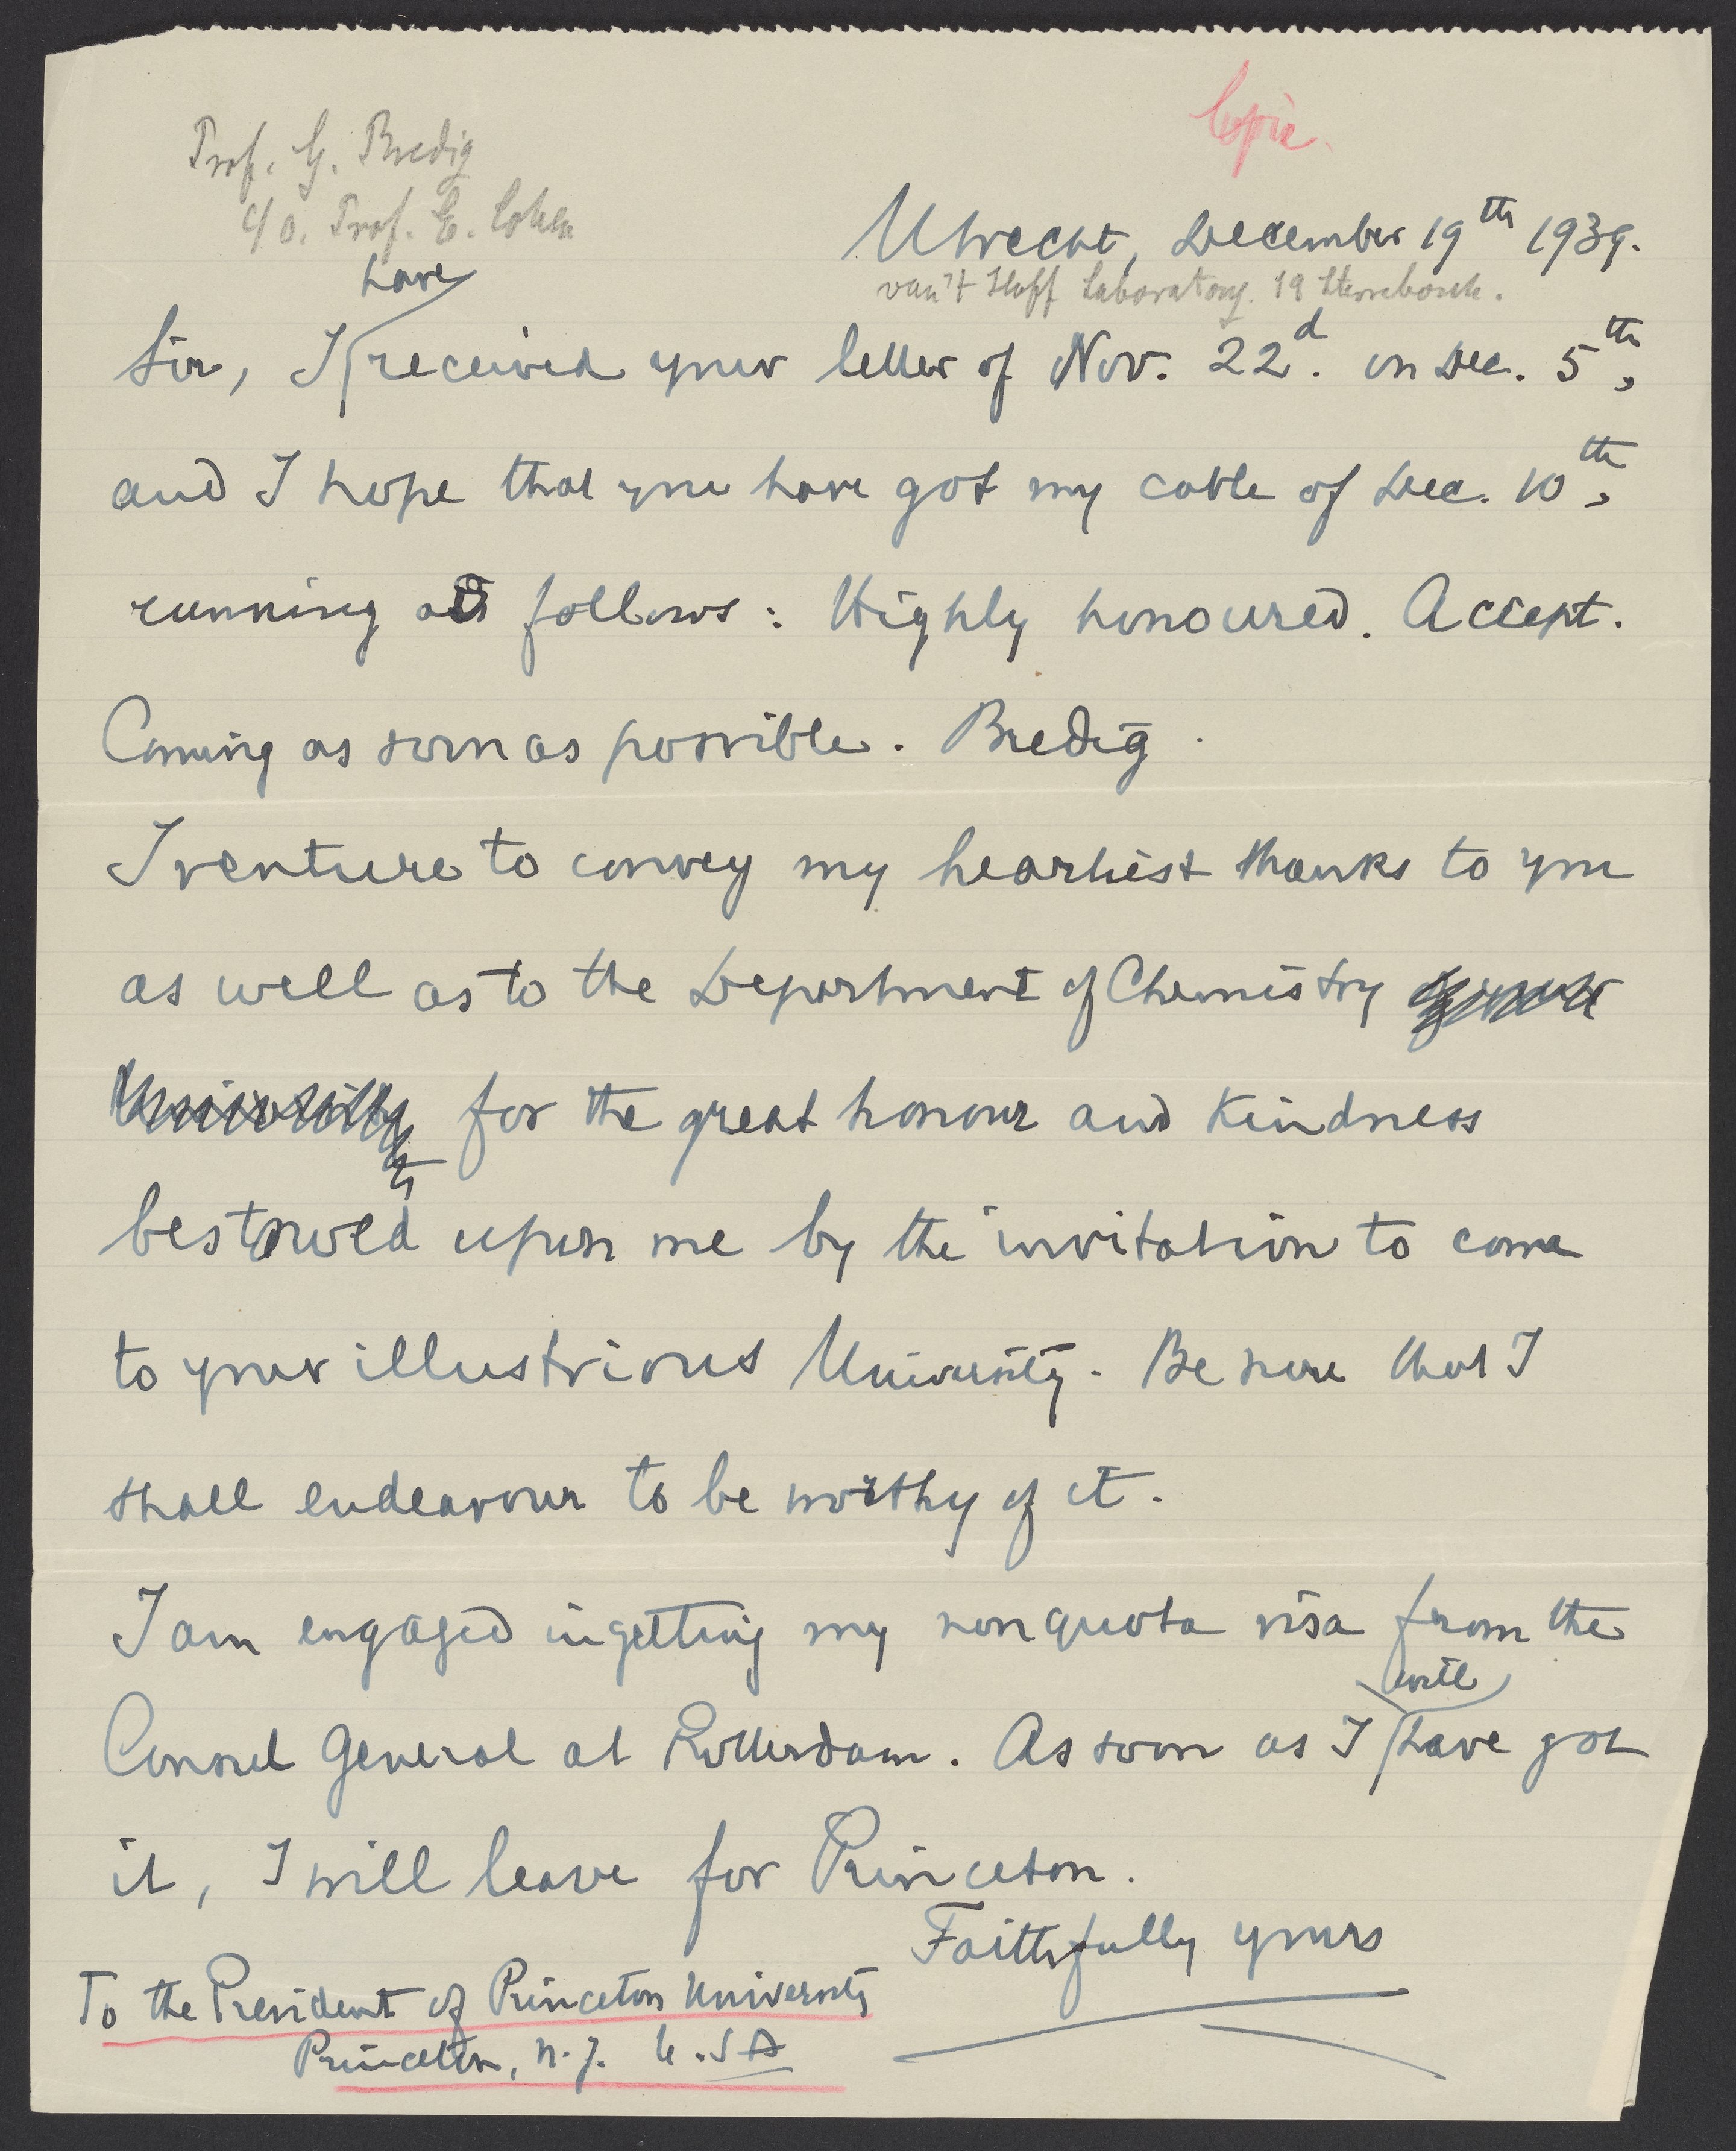 Copie.
Prof. G. Bredig
c/o. Prof. E. Cohen
Utrecht, December 19th 1939.
van't Hoff Laboratory. 19 Sterrebosch.
Sir, I have received your letter of Nov. 22d. on Dec. 5th,
and I hope that you have got my cable of Dec. 10th,
running as follows: Highly honoured. Accept.
Coming as soon as possible. Bredig.
I venture to convey my heartiest thanks to you
as well as to the Department of Chemistry
University for the great honour and kindness
bestowed upon me by the invitation to come
to your illustrious University. Be sure that I
shall endeavour to be worthy of it.
I am engaged in getting my nonquota visa from the
Consul General at Rotterdam. As soon as I will have got
it, I will leave for Princeton.
Faithfully yours
To the President of Princeton University
Princeton, N.J. U.SA